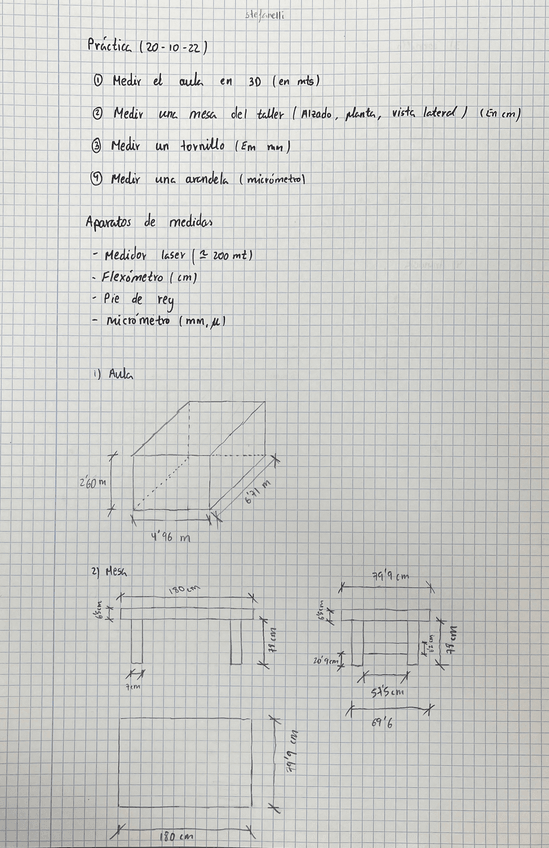 stefanelli
Práctica (20-10-22)
① Medir el aula en 3D (en mts)
② Medir una mesa del taller (Alzado, planta, vista lateral) (En cm)
③ Medir un tornillo (Em mm)
④ Medir una arandela (micrómetro)
Aparatos de medidas
- Medidor laser (≃ 200 mt)
- Flexómetro (cm)
- Pie de rey
- micrómetro (mm, μ)
1) Aula
2'60 m
6'71 m
4'96 m
2) Mesa
180 cm
79'9 cm
7cm
20'9cm
69'6
79'9 cm
180 cm